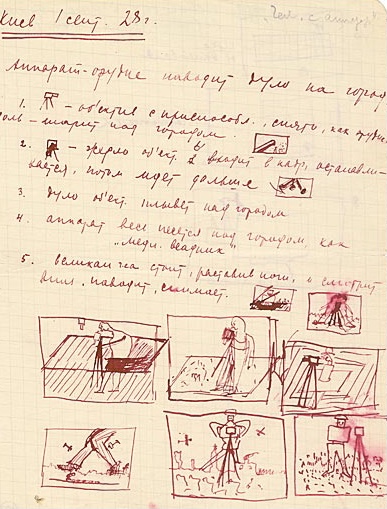 Киев 1 сент. 28г.
Чел. с аппар.
Аппарат-орудие наводит дуло на город
1. — объектив с приспособл., снято, как орудие
роль – шарит над городом.
2. — жерло объект. входит в кадр, останавли-
вается, потом идет дальше
3. дуло объект. плывет над городом
4. аппарат весь несется над городом, как
„медн. всадник"
5. великан стоит, расставив ноги, и смотрит
вниз, наводит, снимает.